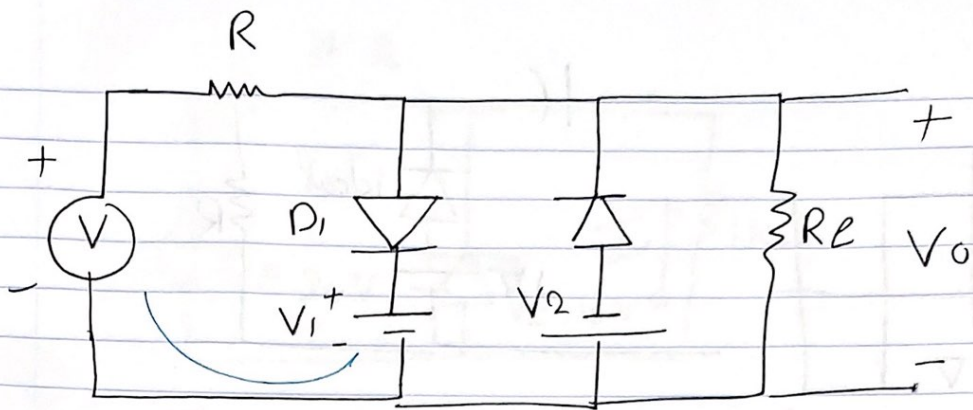 R
+
V
-
D1
V1
+
-
V2
Rl
+
Vo
-